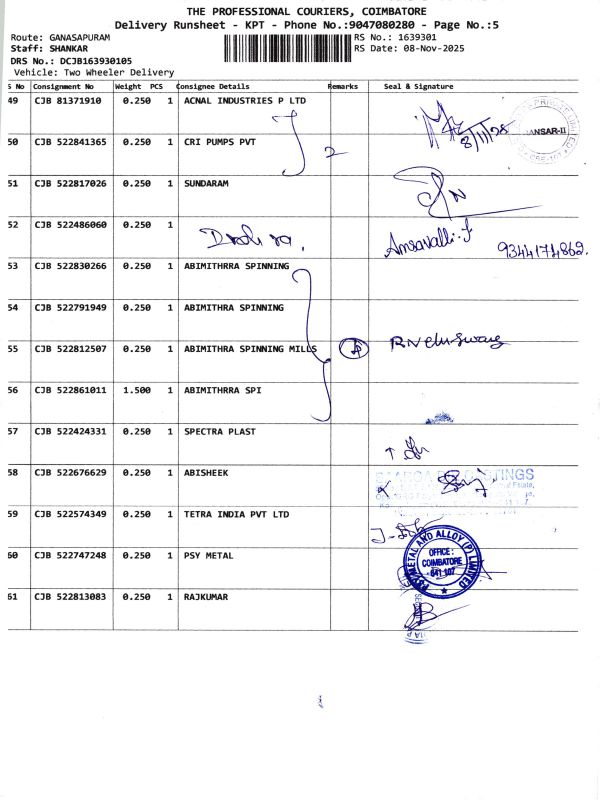 THE PROFESSIONAL COURIERS, COIMBATORE
Delivery Runsheet - KPT - Phone No.:9047080280 - Page No.:5
Route: GANASAPURAM RS No.: 1639301
Staff: SHANKAR RS Date: 08-Nov-2025
DRS No.: DCJB163930105
Vehicle: Two Wheeler Delivery
S No Consignment No Weight PCS Consignee Details Remarks Seal & Signature
49 CJB 81371910 0.250 1 ACNAL INDUSTRIES P LTD 8/11/25 ANSAR-II
50 CJB 522841365 0.250 1 CRI PUMPS PVT 2
51 CJB 522817026 0.250 1 SUNDARAM
52 CJB 522486060 0.250 1 Ansavalli.J 9344174862.
53 CJB 522830266 0.250 1 ABIMITHRRA SPINNING
54 CJB 522791949 0.250 1 ABIMITHRRA SPINNING
55 CJB 522812507 0.250 1 ABIMITHRRA SPINNING MILLS
56 CJB 522861011 1.500 1 ABIMITHRRA SPI
57 CJB 522424331 0.250 1 SPECTRA PLAST
58 CJB 522676629 0.250 1 ABISHEEK
59 CJB 522574349 0.250 1 TETRA INDIA PVT LTD
60 CJB 522747248 0.250 1 PSY METAL
PSY METAL AND ALLOY (P) LIMITED
OFFICE:
COIMBATORE
641 107
61 CJB 522813083 0.250 1 RAJKUMAR